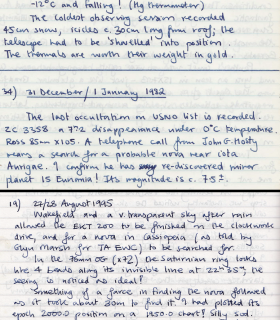 -12°C and falling! (Hg thermometer)
The coldest observing session recorded
45cm snow, icicles c. 30cm long from roof; the
telescope had to be 'shuelled' into position.
The thermals are worth their weight in gold.
34) 31 December / 1 January 1982
The last occultation on USNO list is recorded.
ZC 3358 a 7.2 disappearance under 0°C temperature.
Ross 85mm x105. A telephone call from John G. Hosty
means a search for a probable nova near iota
Aurigae. I confirm he has re-discovered minor
planet 15 Eunomia! Its magnitude is c. 7.5
19) 27/28 August 1995
Wakefield and a v. transparent sky after rain
allowed the EXT 200 to be finished in the clockwork
drive, and for a nova in Cassiopeia (as told by
Guy for TA ENC) to be searched for.
In the 70mm OG (x72) the Saturnian ring looks
like 4 beads along its invisible line at 22h35m. The
seeing is noticed as ideal!
Something of a farce in finding the nova followed
as it took about 30m to find it! I had plotted its
epoch 2000.0 position on a 1950.0 chart! Silly sod.